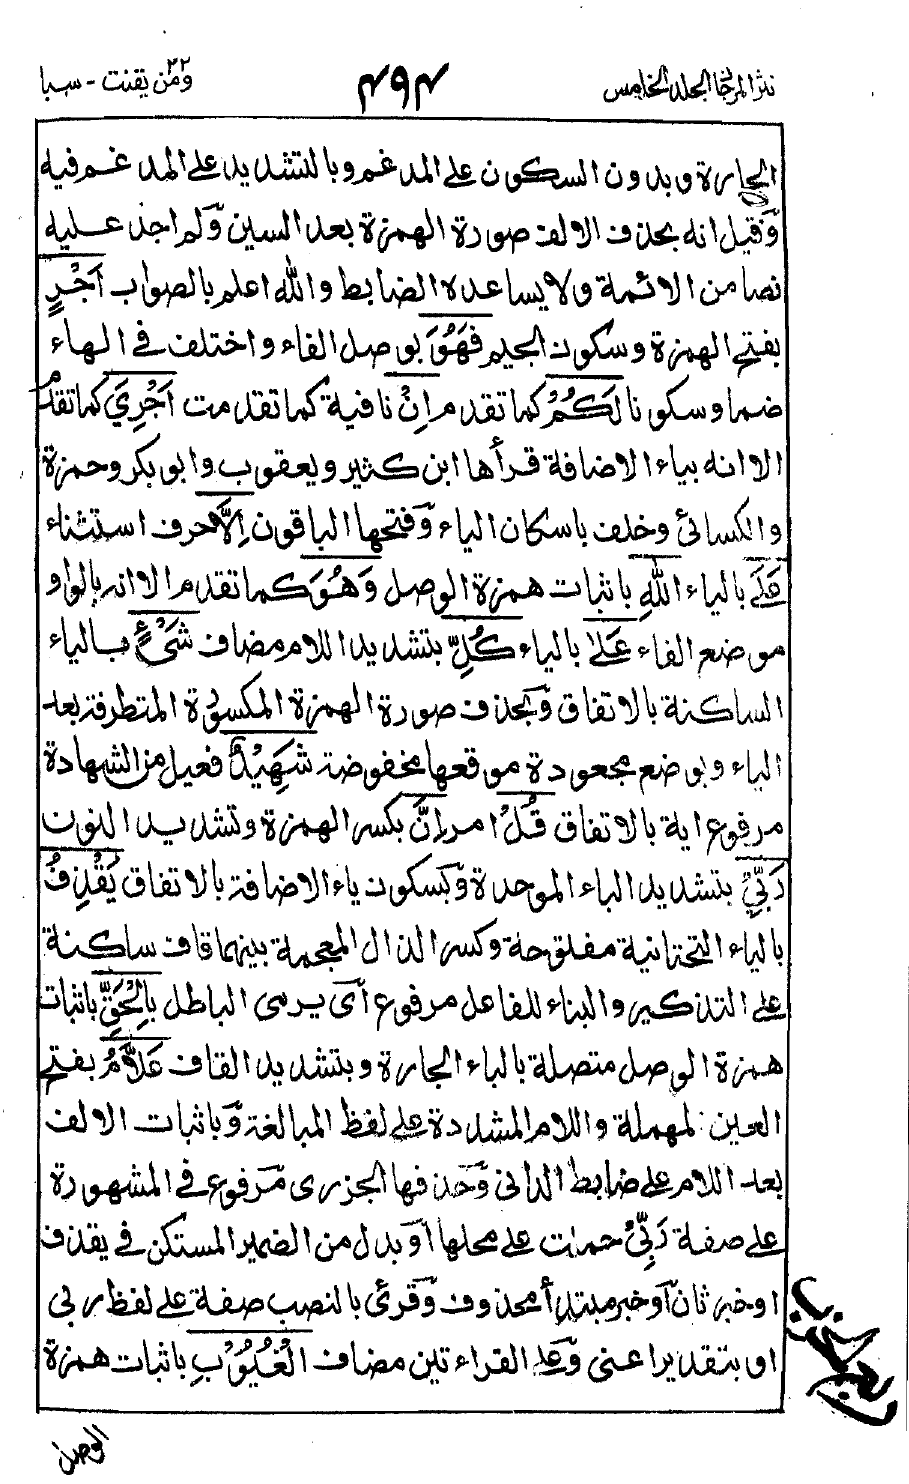 نثر المرجان المجلد الخامس
٤٩٤
ومن يقنت ٢٢ - سبا
الجارة وبدون السكون على المدغم وبالتشديد على المدغم فيه
وقيل انه بحذف الالف صورة الهمزة بعد السين ولم اجد عليه
نصا من الائمة ولا يساعده الضابط والله اعلم بالصواب اَجْرٍ
بفتح الهمزة وسكون الجيم فَهُوَ بوصل الفاء واختلف في الهاء
ضما وسكونا لَكُمْ كما تقدم اِنْ نافية كما تقدمت اَجْرِيَ كما تقدم
الا انه بياء الاضافة قرأها ابن كثير ويعقوب وابو بكر وحمزة
والكسائي وخلف باسكان الياء وفتحها الباقون اِلَّا حرف استثناء
عَلَى بالياء اللهِ باثبات همزة الوصل وَهُوَ كما تقدم الا انه بالواو
موضع الفاء عَلٰى بالياء كُلِّ بتشديد اللام مضاف شَيْءٍ بالياء
الساكنة بالاتفاق وبحذف صورة الهمزة المكسورة المتطرفة بعد
الياء وبوضع مجعودة موقعها مخفوضة شَهِيْدٌ فعيل من الشهادة
مرفوع اية بالاتفاق قُلْ امر اِنَّ بكسر الهمزة وتشديد النون
رَبِّيْ بتشديد الباء الموحدة وبسكون ياء الاضافة بالاتفاق يَقْذِفُ
بالياء التحتانية مفتوحة وكسر الذال المعجمة بينهما قاف ساكنة
على التذكير والبناء للفاعل مرفوع اى يرمى الباطل بِالْحَقِّ باثبات
همزة الوصل متصلة بالباء الجارة وبتشديد القاف عَلَّامُ بفتح
العين المهملة واللام المشددة على لفظ المبالغة وباثبات الالف
بعد اللام على ضابط الدانى وحذفها الجزرى مرفوع في المشهورة
على صفة رَبِّيْ حملت على محلها او بدل من الضمير المستكن في يقذف
او خبر ثان او خبر مبتدأ محذوف وقرئ بالنصب صفة على لفظ ربى
او بتقدير اعنى وعلى القراءتين مضاف الْغُيُوْبِ باثبات همزة
الوصل